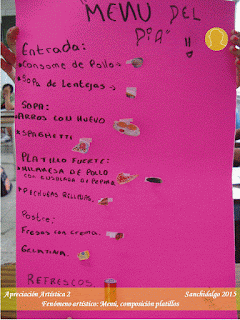 "MENU DEL
DIA"
Entrada:
*Consome de Pollo
*Sopa de Lentejas
SOPA:
ARROS CON HUEVO
*SPAGHETTI
PLATILLO FUERTE:
*MILANESA DE POLLO
CON ENSALADA DE
*PECHUGA RELLENA.
Postre:
Fresas con crema.
GELATINA.
REFRESCOS
Apreciación Artística 2 Sanchidalgo 2015
Fenómeno artístico: Menú, composición platillos